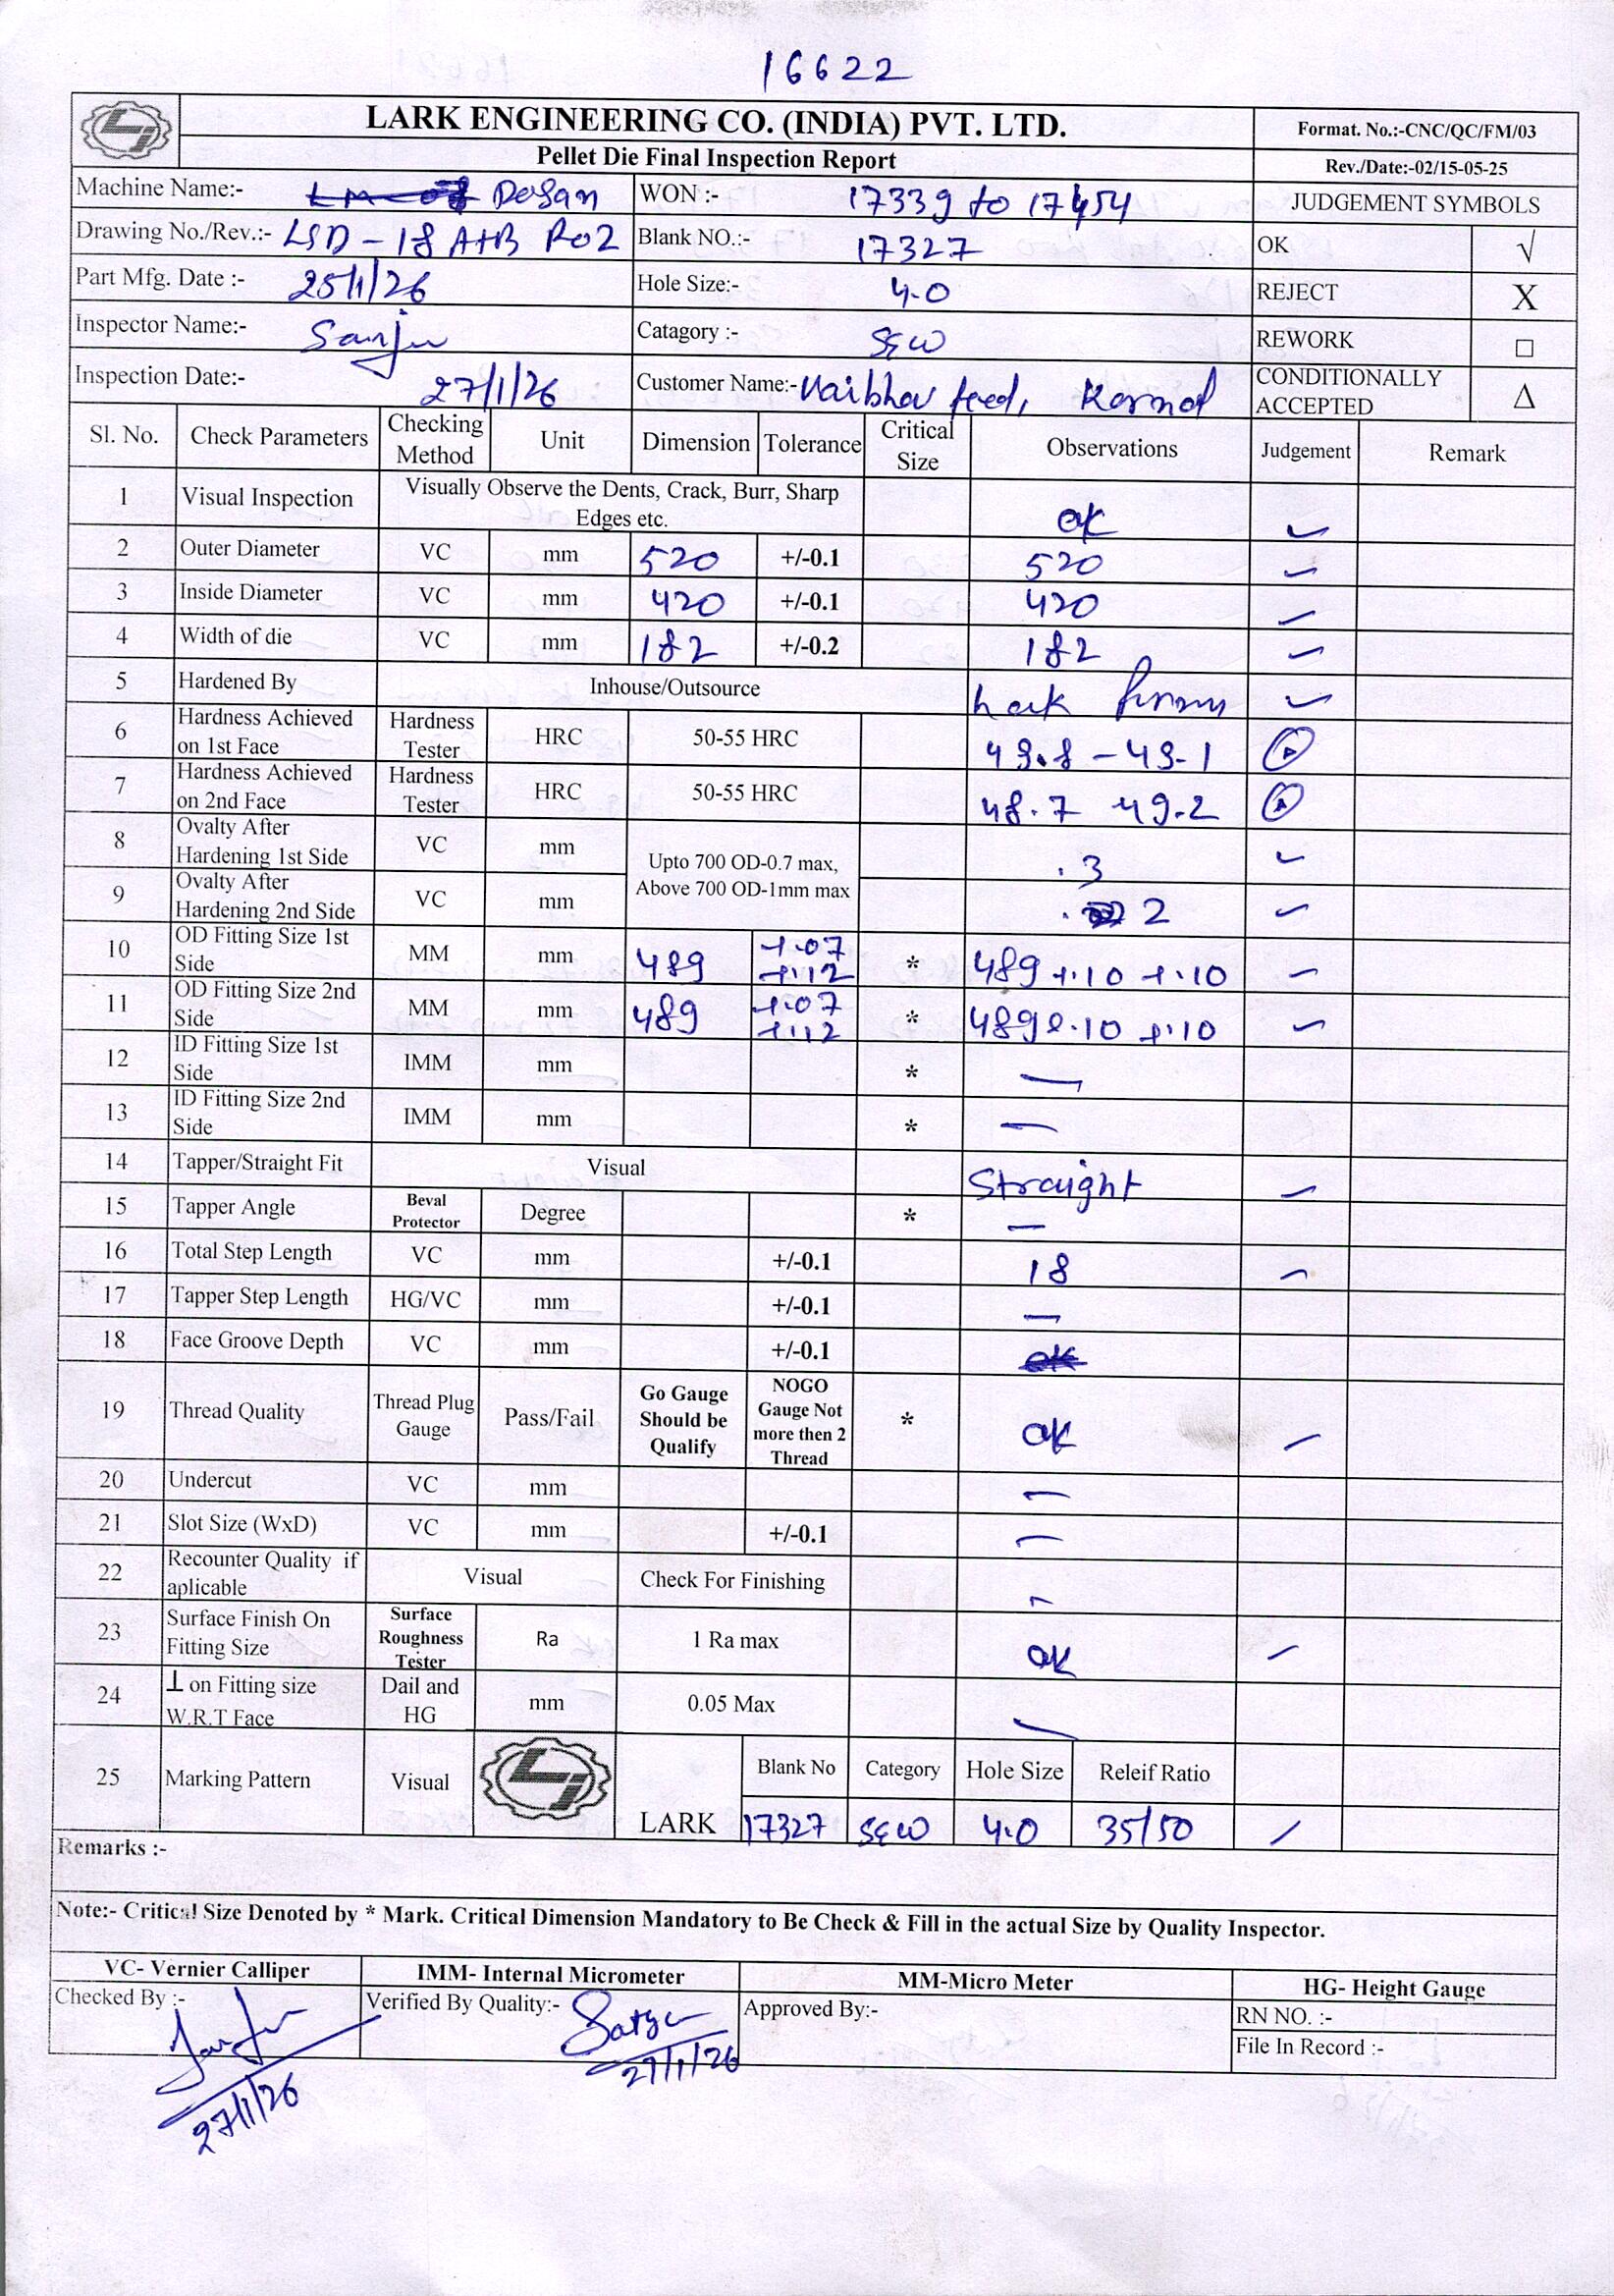 16622
LARK ENGINEERING CO. (INDIA) PVT. LTD.
Format. No.:-CNC/QC/FM/03
Pellet Die Final Inspection Report
Rev./Date:-02/15-05-25
Machine Name:- Desan WON :- 17339 to 17454 JUDGEMENT SYMBOLS
Drawing No./Rev.:- LSD-18 A+B R02 Blank NO.:- 17327 OK √
Part Mfg. Date :- 25/1/26 Hole Size:- 4.0 REJECT X
Inspector Name:- Sanju Catagory :- S&W REWORK □
Inspection Date:- 27/1/26 Customer Name:- Vaibhav feed, Karnal CONDITIONALLY ACCEPTED Δ
Sl. No. Check Parameters Checking Method Unit Dimension Tolerance Critical Size Observations Judgement Remark
1 Visual Inspection Visually Observe the Dents, Crack, Burr, Sharp Edges etc. ok ✓
2 Outer Diameter VC mm 520 +/-0.1 520 ✓
3 Inside Diameter VC mm 420 +/-0.1 420 ✓
4 Width of die VC mm 182 +/-0.2 182 ✓
5 Hardened By Inhouse/Outsource Lark ✓
6 Hardness Achieved on 1st Face Hardness Tester HRC 50-55 HRC 49.8 - 49.1
7 Hardness Achieved on 2nd Face Hardness Tester HRC 50-55 HRC 48.7 49.2
8 Ovalty After Hardening 1st Side VC mm Upto 700 OD-0.7 max, Above 700 OD-1mm max .3 ✓
9 Ovalty After Hardening 2nd Side VC mm .2 ✓
10 OD Fitting Size 1st Side MM mm 489 +.07 +.12 * 489 +.10 +.10 ✓
11 OD Fitting Size 2nd Side MM mm 489 +.07 +.12 * 489 +.10 +.10 ✓
12 ID Fitting Size 1st Side IMM mm * —
13 ID Fitting Size 2nd Side IMM mm * —
14 Tapper/Straight Fit Visual Straight ✓
15 Tapper Angle Beval Protector Degree * —
16 Total Step Length VC mm +/-0.1 18 ✓
17 Tapper Step Length HG/VC mm +/-0.1 —
18 Face Groove Depth VC mm +/-0.1
19 Thread Quality Thread Plug Gauge Pass/Fail Go Gauge Should be Qualify NOGO Gauge Not more then 2 Thread * ok ✓
20 Undercut VC mm —
21 Slot Size (WxD) VC mm +/-0.1 —
22 Recounter Quality if aplicable Visual Check For Finishing —
23 Surface Finish On Fitting Size Surface Roughness Tester Ra 1 Ra max ok ✓
24 ⊥ on Fitting size W.R.T Face Dail and HG mm 0.05 Max —
25 Marking Pattern Visual LARK Blank No Category Hole Size Releif Ratio
17327 S&W 4.0 35/50 ✓
Remarks :-
Note:- Critical Size Denoted by * Mark. Critical Dimension Mandatory to Be Check & Fill in the actual Size by Quality Inspector.
VC- Vernier Calliper IMM- Internal Micrometer MM-Micro Meter HG- Height Gauge
Checked By :- Sanju Verified By Quality:- Approved By:- RN NO. :-
File In Record :-
27/1/26 27/1/26